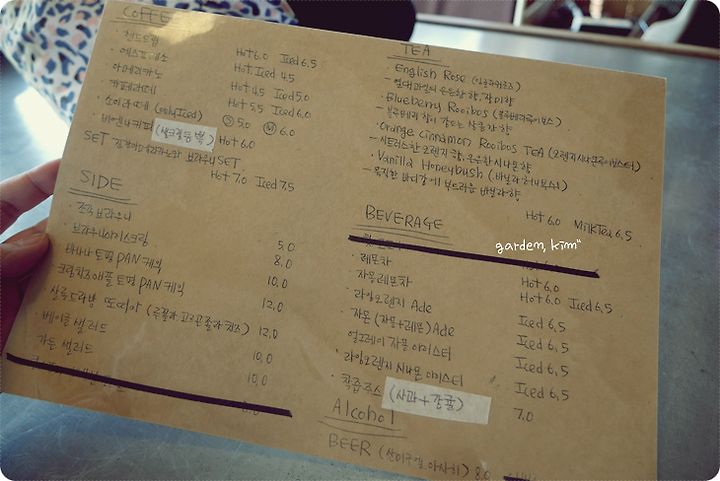 COFFEE
· 핸드드립 Hot 6.0 Iced 6.5
· 에스프레소 Hot. Iced 4.5
· 아메리카노 Hot 4.5 Iced 5.0
· 카페라떼 Hot 5.5 Iced 6.0
· 소이라떼 (only Iced) Ⓢ 5.0 Ⓜ 6.0
· 비엔나커피 (생크림듬뿍) Hot 6.0
SET 브라우니 SET
Hot 7.0 Iced 7.5
SIDE
· 조각브라우니 5.0
· 브라우니아이스크림 8.0
· 바나나 토핑 PAN 케익 10.0
· 크림치즈애플 토핑 PAN 케익 12.0
· 살루드라밤 또띠아 (루꼴라 고르곤졸라 치즈) 12.0
· 베이글 샐러드 10.0
· 가든 샐러드 10.0
TEA
· English Rose
- 열대과일의 은은한 향, 장미향
· Blueberry Rooibos (블루베리루이보스)
- 블루베리 향이 감도는 상큼한 향
· Orange Cinnamon Rooibos TEA (오렌지시나몬루이보스티)
- 시트러스한 오렌지 향, 은은한 시나몬향
· Vanilla Honeybush (바닐라 허니부쉬)
- 묵직한 바디감에 부드러운 바닐라향
Hot 6.0 MilkTea 6.5
BEVERAGE
garden, kim"
· 레몬차 Hot 6.0
· 자몽레몬차 Hot 6.0 Iced 6.5
· 라임오렌지 Ade Iced 6.5
· 자몬 (자몽+레몬) Ade Iced 6.5
· 얼그레이 자몽 아이스티 Iced 6.5
· 라임오렌지 시나몬 아이스티 Iced 6.5
· 착즙주스 (사과+감귤) 7.0
Alcohol
BEER (산미구엘, 아사히) 8.0